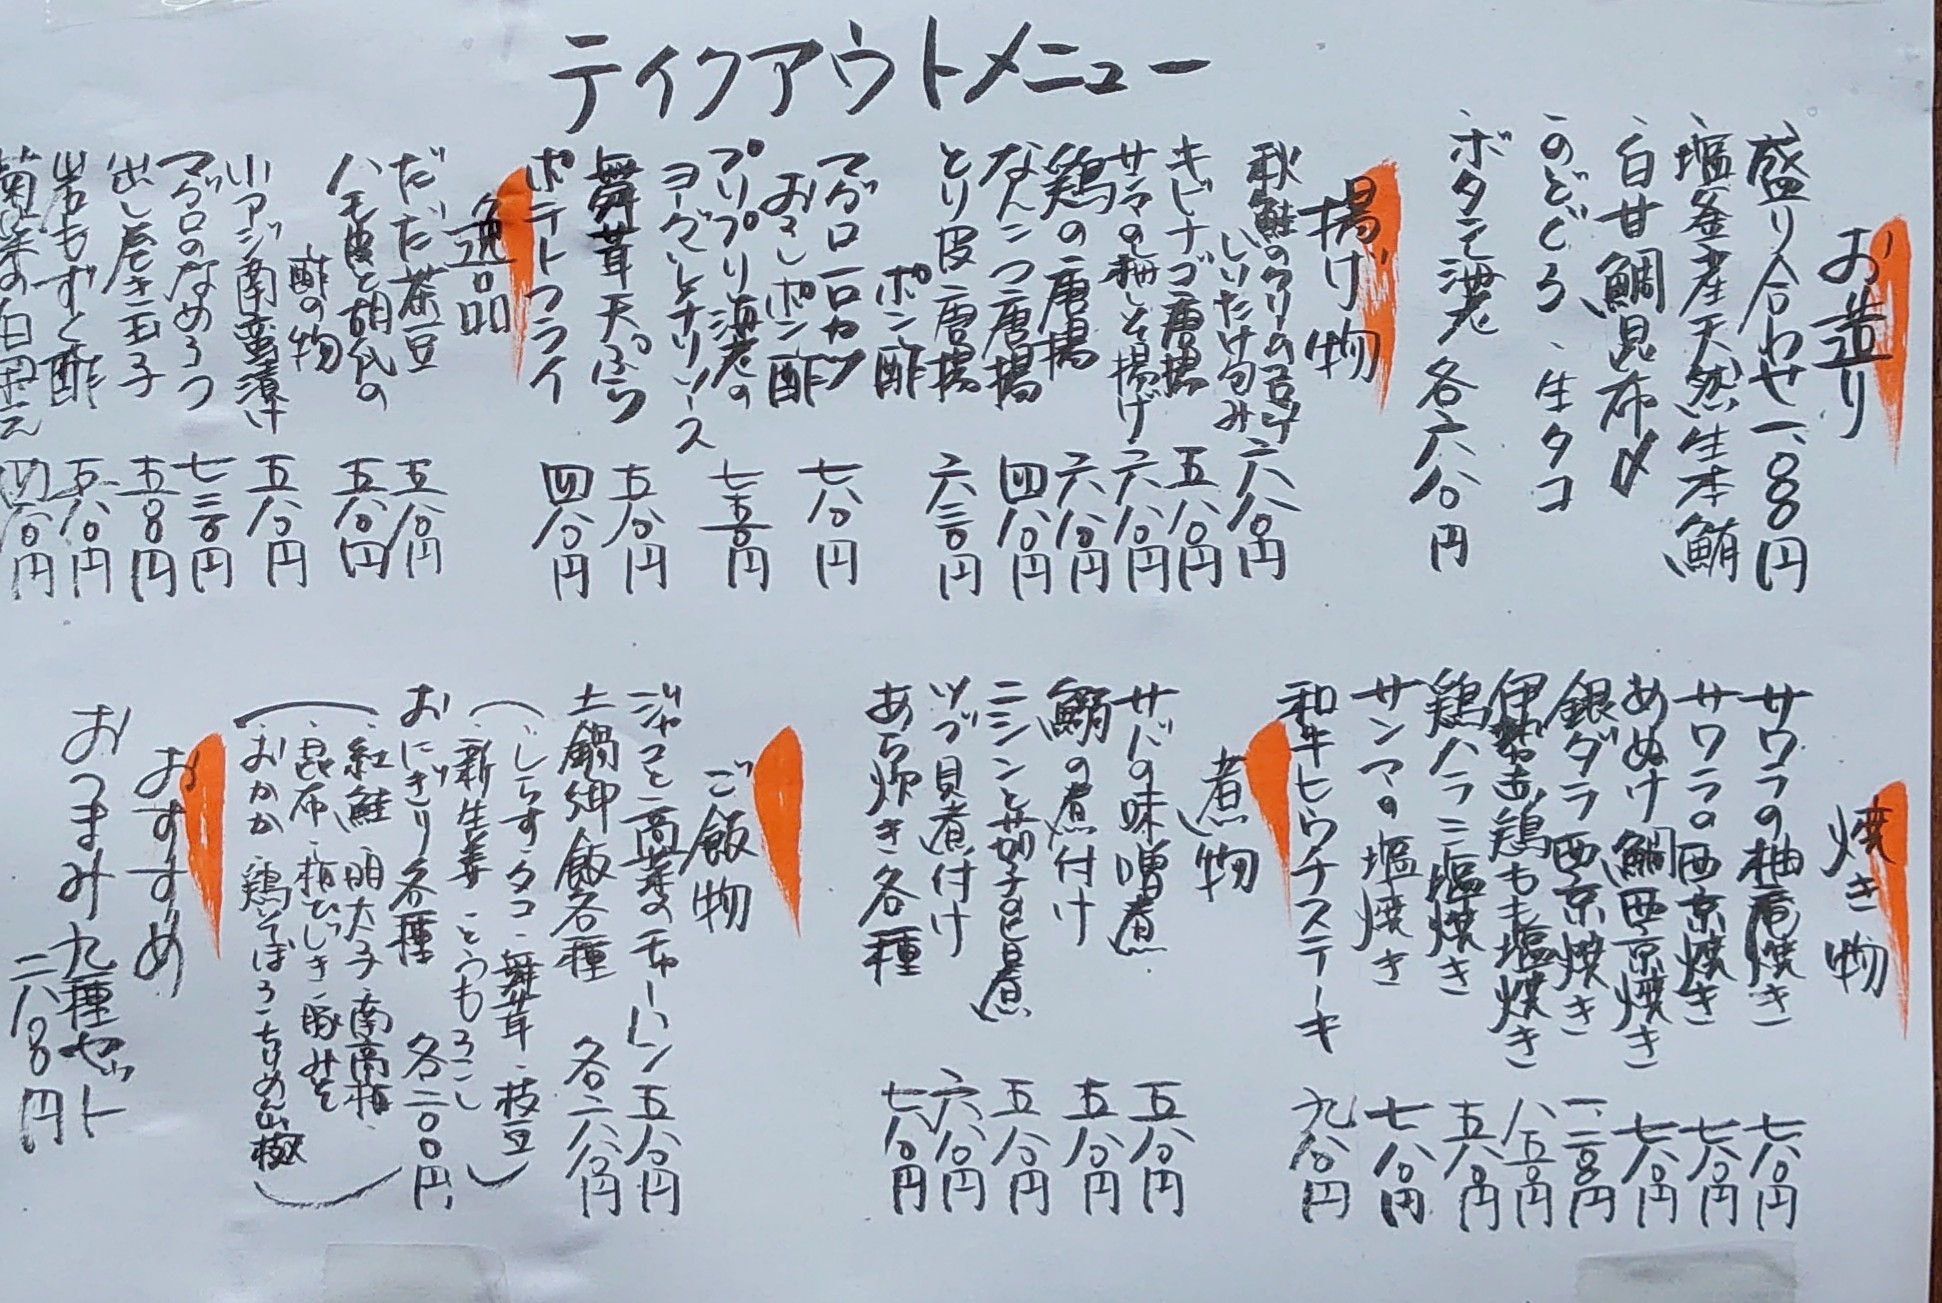 テイクアウトメニュー
お造り
盛り合わせ 一、八〇〇円
、塩釜産天然生本鮪
、白甘鯛昆布〆
、のどぐろ、生タコ
、ボタン海老 各六八〇円
揚げ物
秋鮭のクリーム
しいたけ包み 六八〇円
キビナゴ唐揚 五八〇円
サンマの梅しそ揚げ 六八〇円
鶏の唐揚 六八〇円
なんこつ唐揚 四八〇円
とり皮唐揚
ポン酢 六三〇円
マグロ一口カツ
おろしポン酢 七八〇円
プリプリ海老の
ヨーグルトチリソース 七五〇円
舞茸天ぷら 五八〇円
ポテトフライ 四八〇円
逸品
だだ茶豆 五八〇円
ハモ皮と胡瓜の
酢の物 五八〇円
小アジ南蛮漬け 五八〇円
マグロのなめろう 七三〇円
出し巻き玉子 五五〇円
岩もずく酢 五八〇円
菊菜の白和え 四八〇円
焼き物
サワラの柚庵焼き 七八〇円
サワラの西京焼き 七八〇円
あめぬけ鯛西京焼き 七八〇円
銀ダラ西京焼き 一、二〇〇円
伊勢赤鶏もも塩焼き 八五〇円
鶏ハラミ塩焼き 五八〇円
サンマの塩焼き 七八〇円
和牛ヒウチステーキ 九八〇円
煮物
サバの味噌煮 五八〇円
鰯の煮付け 五八〇円
ニシンと茄子の煮 五八〇円
ツブ貝煮付け 六八〇円
あら炊き各種 七八〇円
ご飯物
ジャコと高菜のチャーハン 五八〇円
土鍋御飯各種 各二六八〇円
（、しらすタコ、舞茸、枝豆
、新生姜 とうもろこし）
おにぎり各種 各二〇〇円
（、紅鮭、明太子、南高梅、
、昆布、梅ひじき、豚みそ
、おかか 鶏そぼろ、ちりめん山椒）
おすすめ
おつまみ九種セット
二八〇〇円